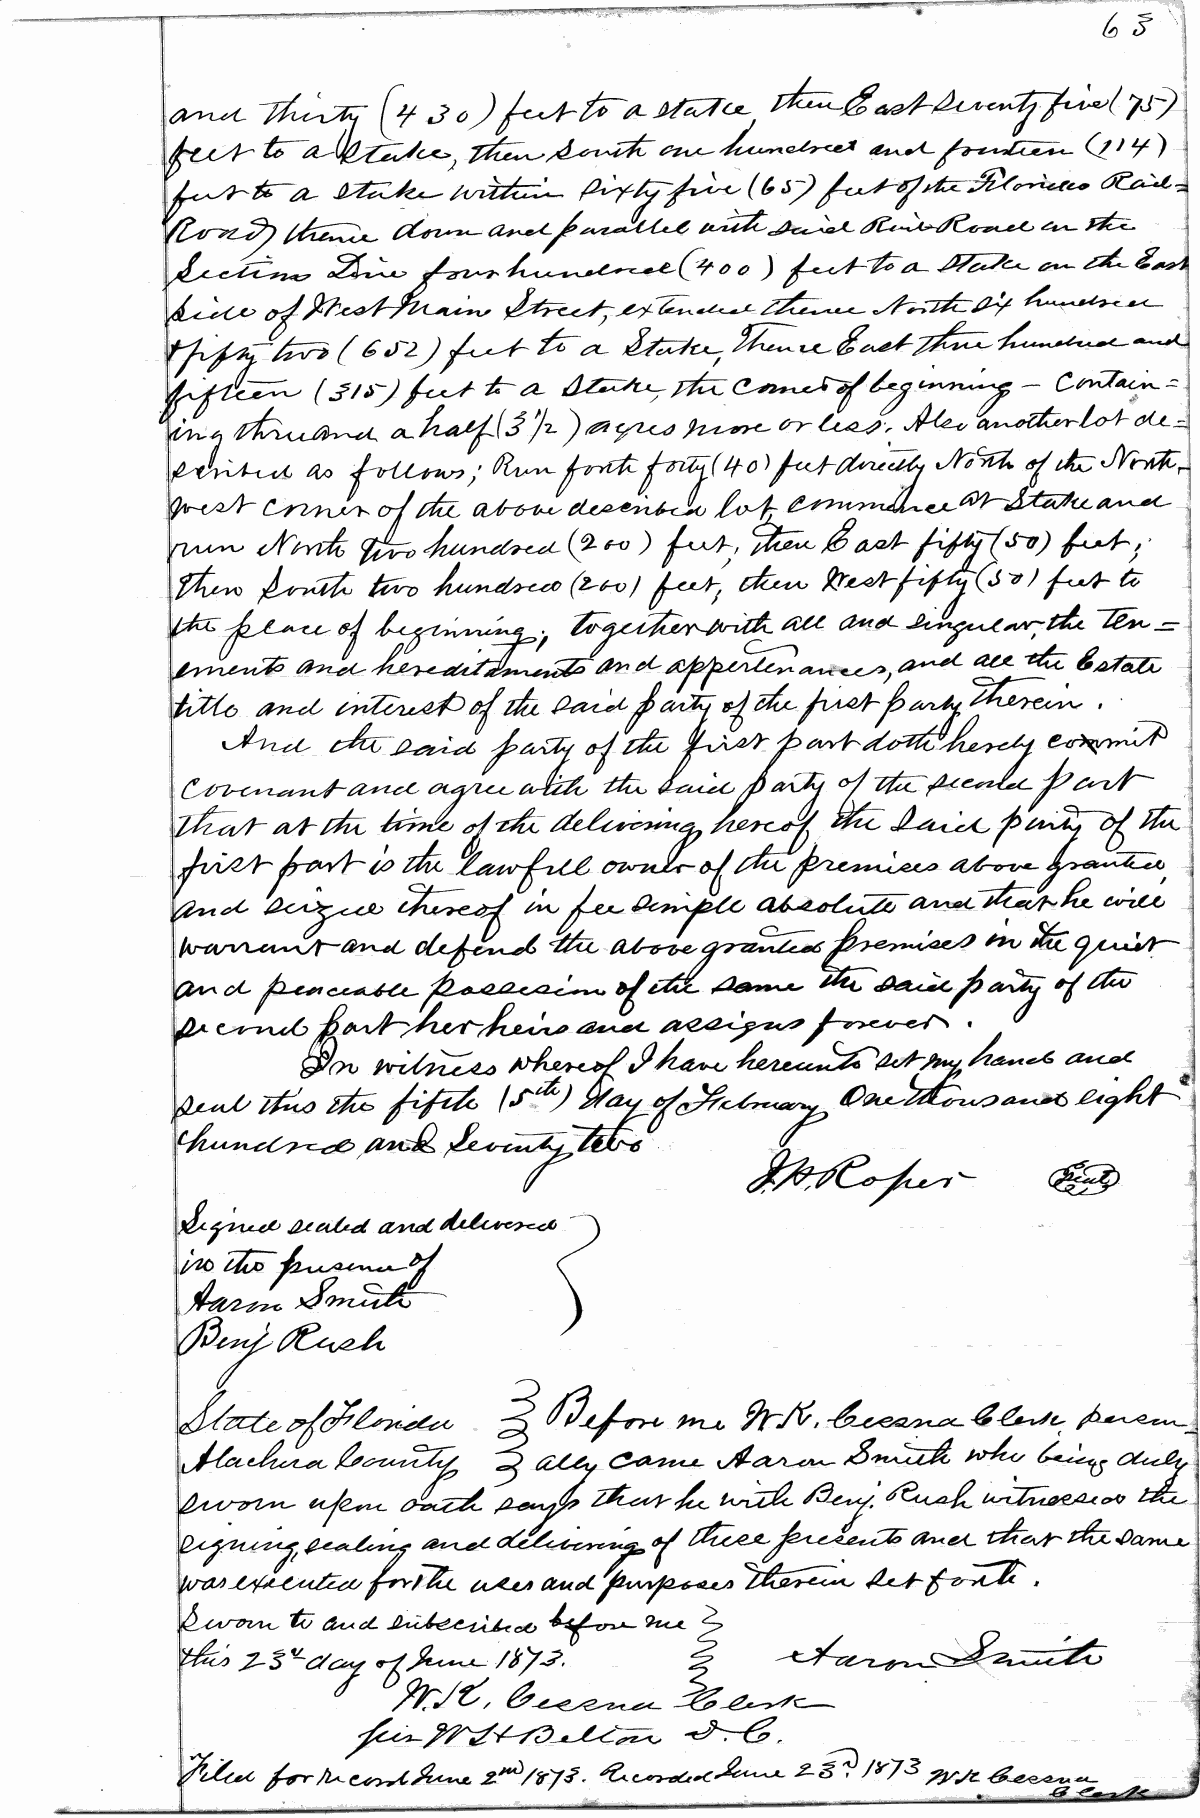 63
and thirty (430) feet to a stake, then East seventy five (75)
feet to a Stake, then South one hundred and fourteen (114)
feet to a stake within Sixty five (65) feet of the Florida Rail=
Road, thence down and parallel with said Rail Road on the
Section Line four hundred (400) feet to a Stake on the East
side of West Main Street, extended thence North six hundred
& fifty two (652) feet to a Stake, Thence East three hundred and
fifteen (315) feet to a Stake, the corner of beginning - Contain=
ing three and a half (3 1/2) acres more or less. Also another lot de=
scribed as follows; Run forth forty (40) feet directly North of the North-
west corner of the above described lot, commence at Stake and
run North Two hundred (200) feet; then East fifty (50) feet;
Then South two hundred (200) feet, then West fifty (50) feet to
the place of beginning; together with all and singular, the Ten=
ements and hereditaments and appertenances, and all the Estate
title and interest of the said party of the first party therein.
And the said party of the first part doth hereby commit
covenant and agree with the said party of the second part
that at the time of the delivering hereof the said party of the
first part is the lawfull owner of the premises above granted,
and seized thereof in fee simple absolute and that he will
warrant and defend the above granted premises in the quiet
and peaceable possession of the same the said party of the
second part her heirs and assigns forever.
In witness whereof I have hereunto set my hand and
seal this the fifth (5th) day of February One thousand eight
hundred and Seventy two
J. H. Roper Seal
Signed sealed and delivered
in the presence of
Aaron Smith
Benj Rush
State of Florida Before me W.K. Cessna Clerk person=
Alachua County ally came Aaron Smith who being duly
sworn upon oath says that he with Benj. Rush witnessed the
signing, sealing and delivering of these presents and that the same
was executed for the uses and purposes therein set forth.
Sworn to and subscribed before me
this 23d day of June 1873. Aaron Smith
W.K. Cessna Clerk
per W H Belton D.C.
Filed for record June 2nd 1873. Recorded June 23d. 1873 W K Cessna
Clerk